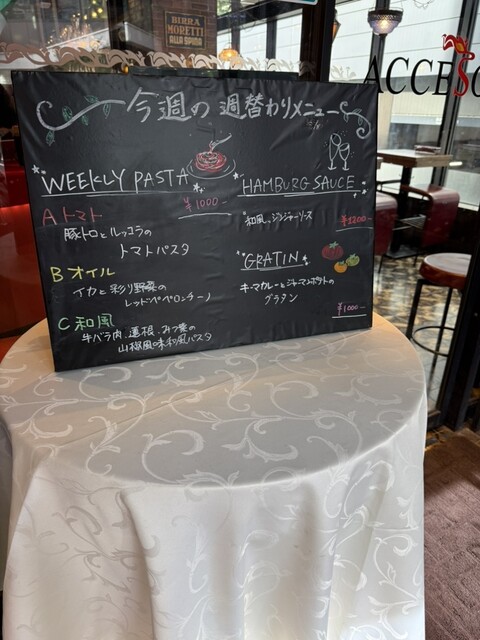 BIRRA
MORETTI
ALLA SPINA
ACCESO
今週の週替わりメニュー
WEEKLY PASTA
¥1000-
A トマト
豚トロとルッコラの
トマトパスタ
B オイル
イカと彩り野菜の
レッドペペロンチーノ
C 和風
牛バラ肉、蓮根、みつ葉の
山椒風味和風パスタ
HAMBURG SAUCE
和風ジンジャーソース
¥1200-
GRATIN
キーマカレーとジャーマンポテトの
グラタン
¥1000-